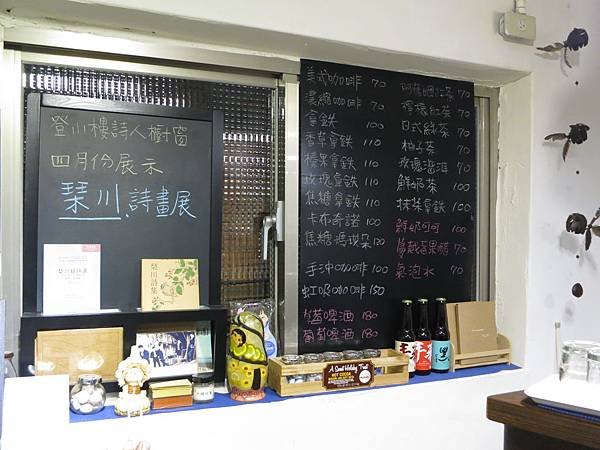 登山樓詩人櫥窗
四月份展示
琹川 詩畫展
琹川詩集
美式咖啡 70
濃縮咖啡 70
拿鐵 100
香草拿鐵 110
榛果拿鐵 110
玫瑰拿鐵 110
焦糖拿鐵 110
卡布奇諾 100
焦糖瑪琪朵 120
手沖咖啡 100
虹吸咖啡 150
啤酒 180
葡萄啤酒 180
阿薩姆紅茶 70
檸檬紅茶 70
日式綠茶 70
柚子茶 70
玫瑰普洱 70
鮮奶茶 100
抹茶拿鐵 100
鮮奶可可 100
蔓越莓果醋 70
氣泡水 70
A Sweet Holiday Treat
HOT COCOA